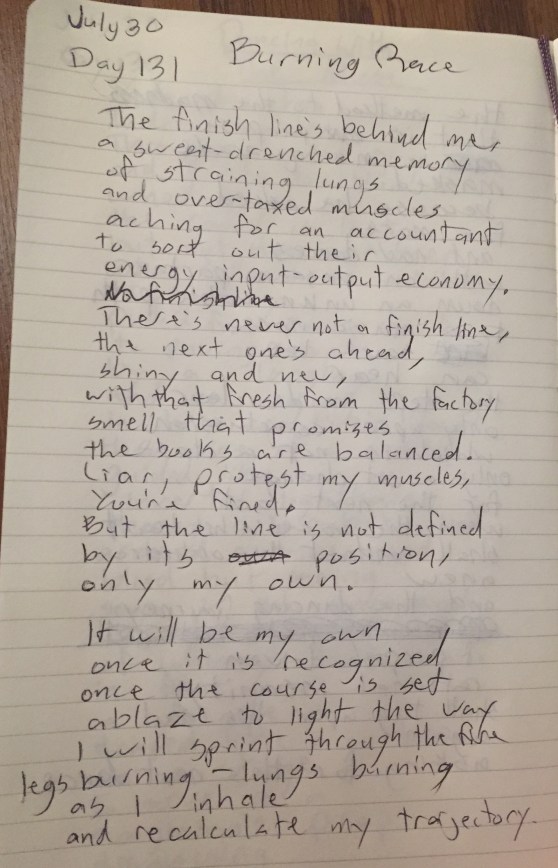 July 30
Day 131 Burning Race
The finish line's behind me,
a sweat-drenched memory
of straining lungs
and over-taxed muscles
aching for an accountant
to sort out their
energy input-output economy.
No finish line
There's never not a finish line,
the next one's ahead,
shiny and new,
with that fresh from the factory
smell that promises
the books are balanced.
Liar, protest my muscles,
You're fired.
But the line is not defined
by its own position,
only my own.
It will be my own
once it is recognized,
once the course is set
ablaze to light the way
I will sprint through the fire
legs burning - lungs burning
as I inhale
and recalculate my trajectory.